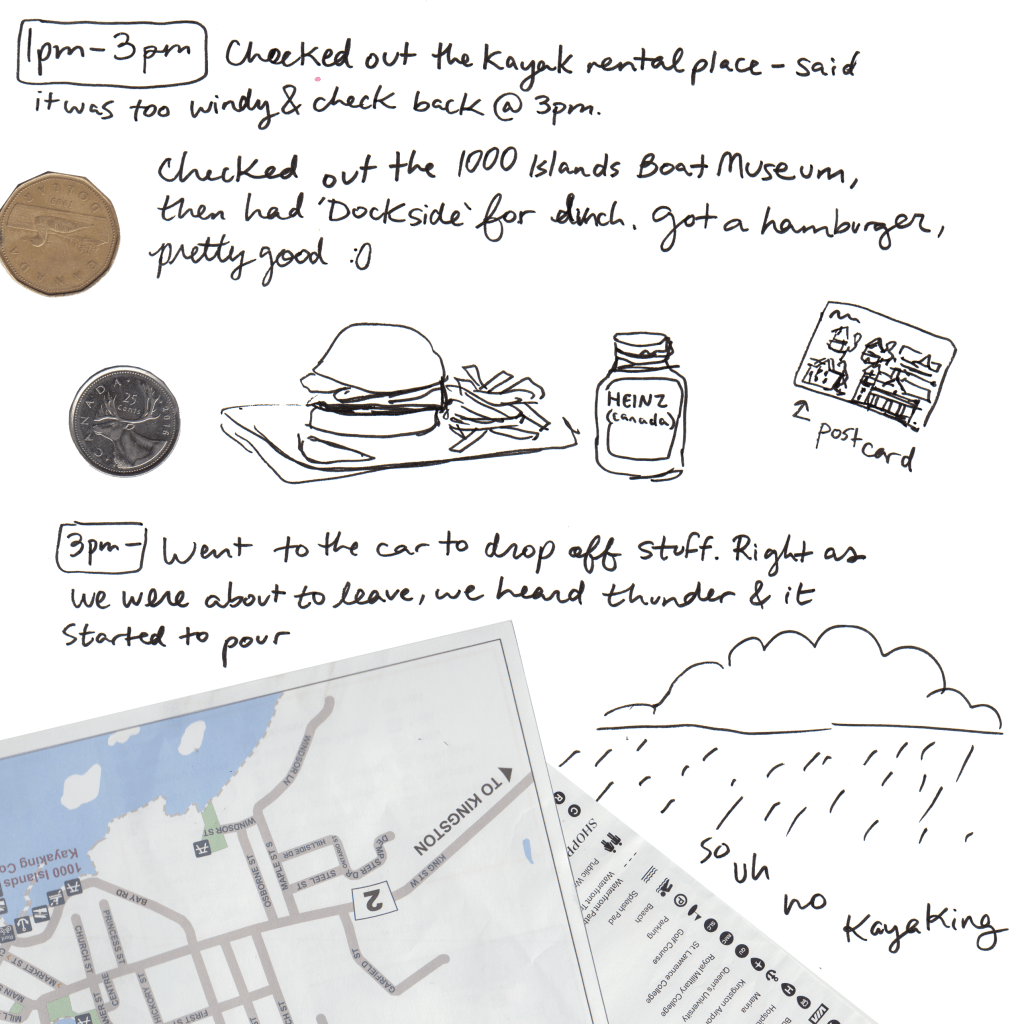 1pm-3pm Checked out the Kayak rental place - said
it was too windy & check back @ 3pm.
Checked out the 1000 Islands Boat Museum,
then had 'Dockside' for lunch. Got a hamburger,
pretty good :0
DOLLAR
CANADA
CANADA 25 cents 2016
HEINZ
(canada)
post
card
3pm- Went to the car to drop off stuff. Right as
we were about to leave, we heard thunder & it
started to pour
so
uh
no
Kayaking
TO KINGSTON
2
KING ST W
WINDSOR LN
WINDSOR ST
HILLSIDE DR
DEMPSTER DR
STEEL ST
MAPLE ST S
OSBORNE ST
1000 Islands
Kayaking Co
BAY RD
CHURCH ST
PRINCESS ST
MARKET ST
MAIN
MILL
CENTRE
HICKORY ST
FIRST ST
GARFIELD ST
SHOPP
Public W
Waterfront T
Waterfront Path
Splash Pad
Beach
Parking
Golf Course
St. Lawrence College
Royal Military College
Queen's University
Kingston Airpor
Marina
Hospi